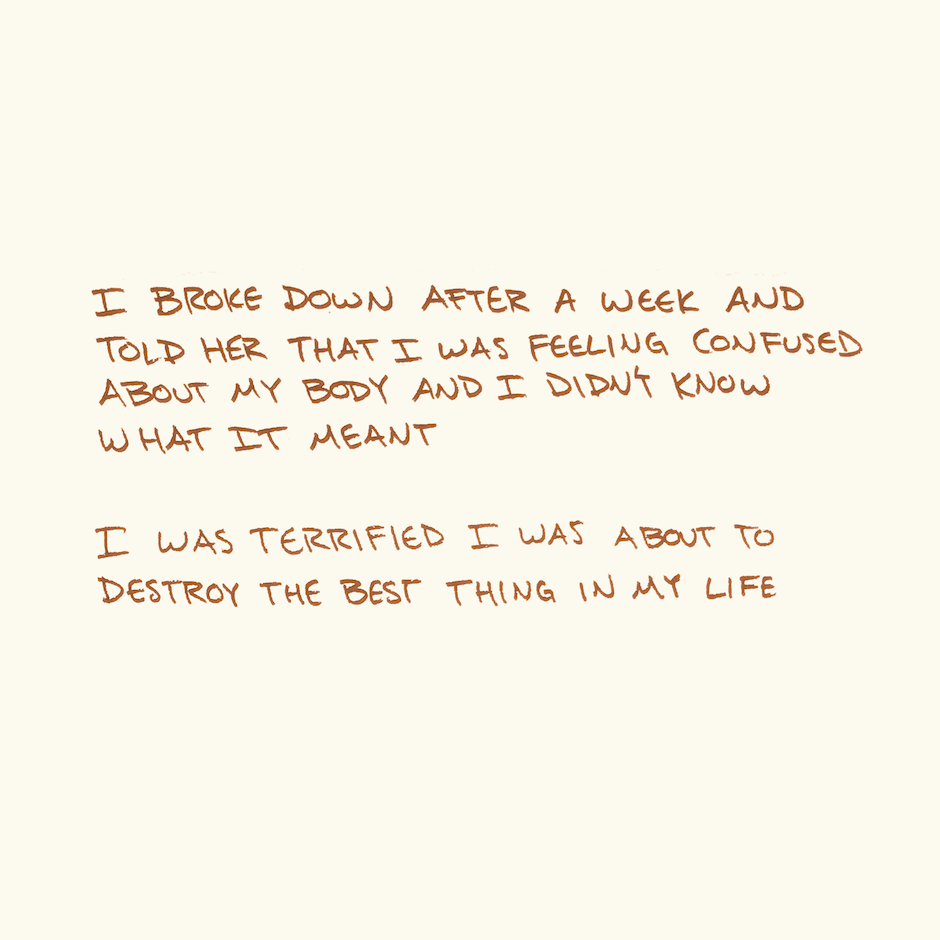 I BROKE DOWN AFTER A WEEK AND
TOLD HER THAT I WAS FEELING CONFUSED
ABOUT MY BODY AND I DIDN'T KNOW
WHAT IT MEANT
I WAS TERRIFIED I WAS ABOUT TO
DESTROY THE BEST THING IN MY LIFE